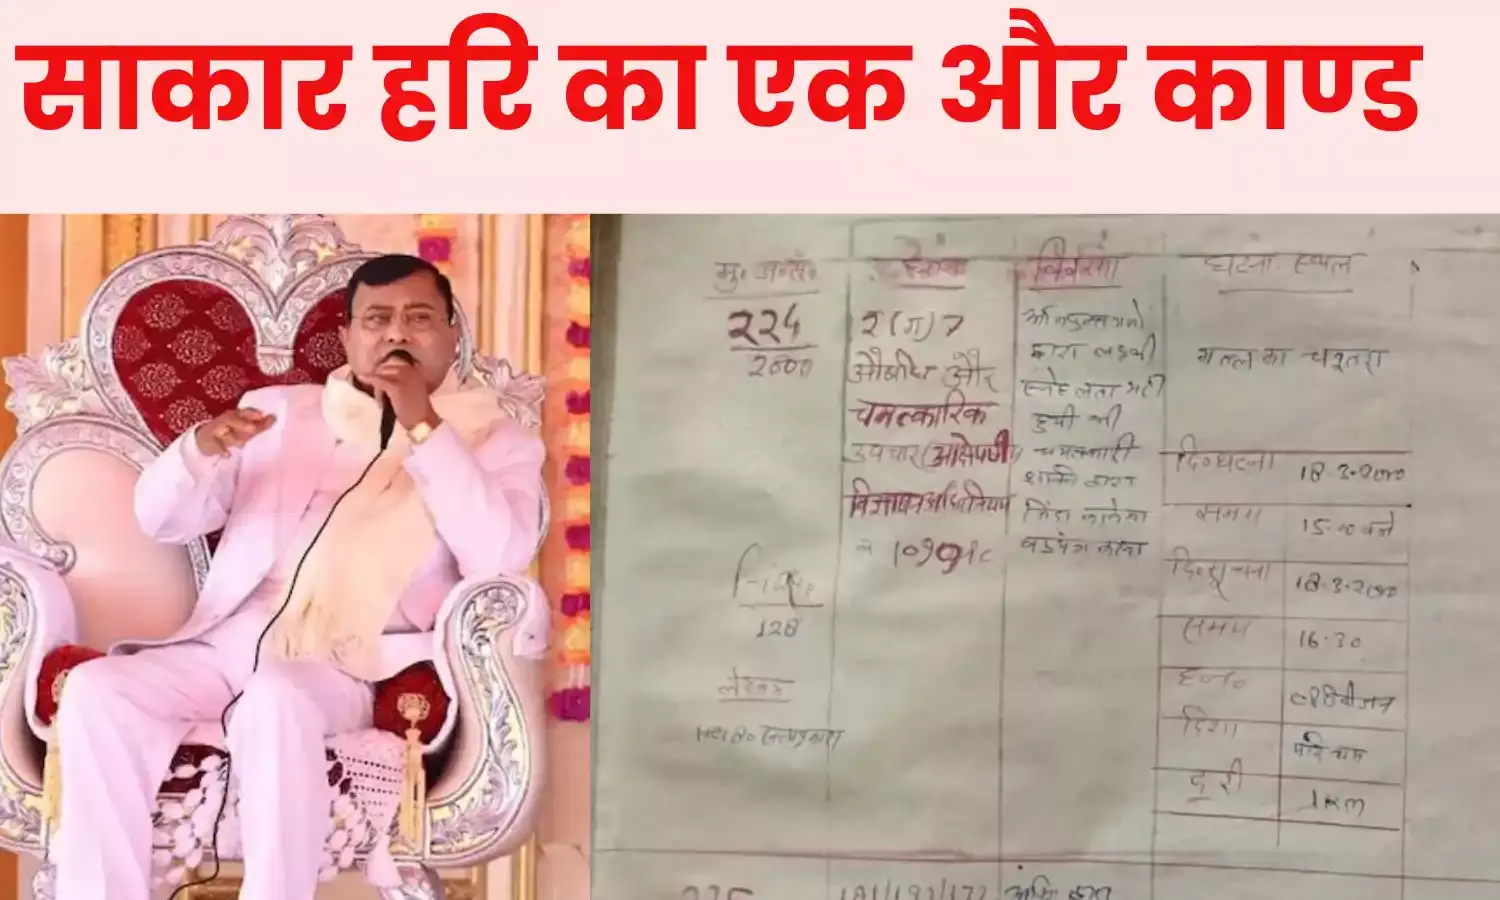 साकार हरि का एक और काण्ड
मु. अ.सं.
विवरण
घटना स्थल
२२५
2000
२(ज)७
औषधि और
चमत्कारिक
उपचार(आक्षेपणीय
विज्ञापन अधिनियम
व 109
द्वारा लडकी
स्नेह लता मरी
हुयी को
चमत्कारी
शक्ति द्वारा
जिंदा करने का
षडयंत्र करना
मल्ल का चबूतरा
दि०घटना 18.3.2000
समय 15.00 बजे
दि०सूचना 18.3.2000
समय 16.30
दिशा पश्चिम
दूरी 1km
128
लेखक
225